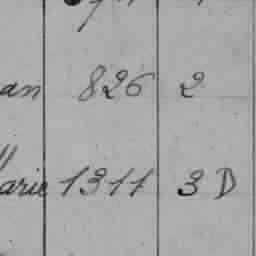 an 826 2
arie 1311 3 D